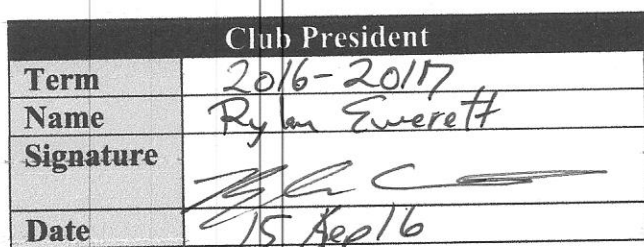 Club President
Term 2016-2017
Name Rylan Everett
Signature
Date 15 Sep 16